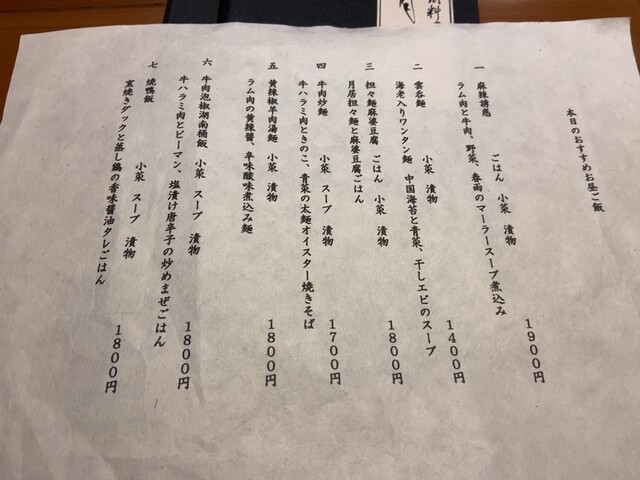 本日のおすすめお昼ご飯
一 麻辣誘惑 ごはん 小菜 漬物
ラム肉と牛肉、野菜、春雨のマーラースープ煮込み
1900円
二 雲呑麺 小菜 漬物
海老入りワンタン麺 中国海苔と青菜、干しエビのスープ
1400円
三 担々麺麻婆豆腐 ごはん 小菜 漬物
月居担々麺と麻婆豆腐ごはん
1800円
四 牛肉炒麺 小菜 スープ 漬物
牛ハラミ肉ときのこ、青菜の太麺オイスター焼きそば
1700円
五 黄辣椒羊肉湯麺 小菜 漬物
ラム肉の黄辣醤、辛味酸味煮込み麺
1800円
六 牛肉泡椒湖南桶飯 小菜 スープ 漬物
牛ハラミ肉とピーマン、塩漬け唐辛子の炒めまぜごはん
1800円
七 焼鴨飯 小菜 スープ 漬物
窯焼きダックと蒸し鶏の香味醤油タレごはん
1800円